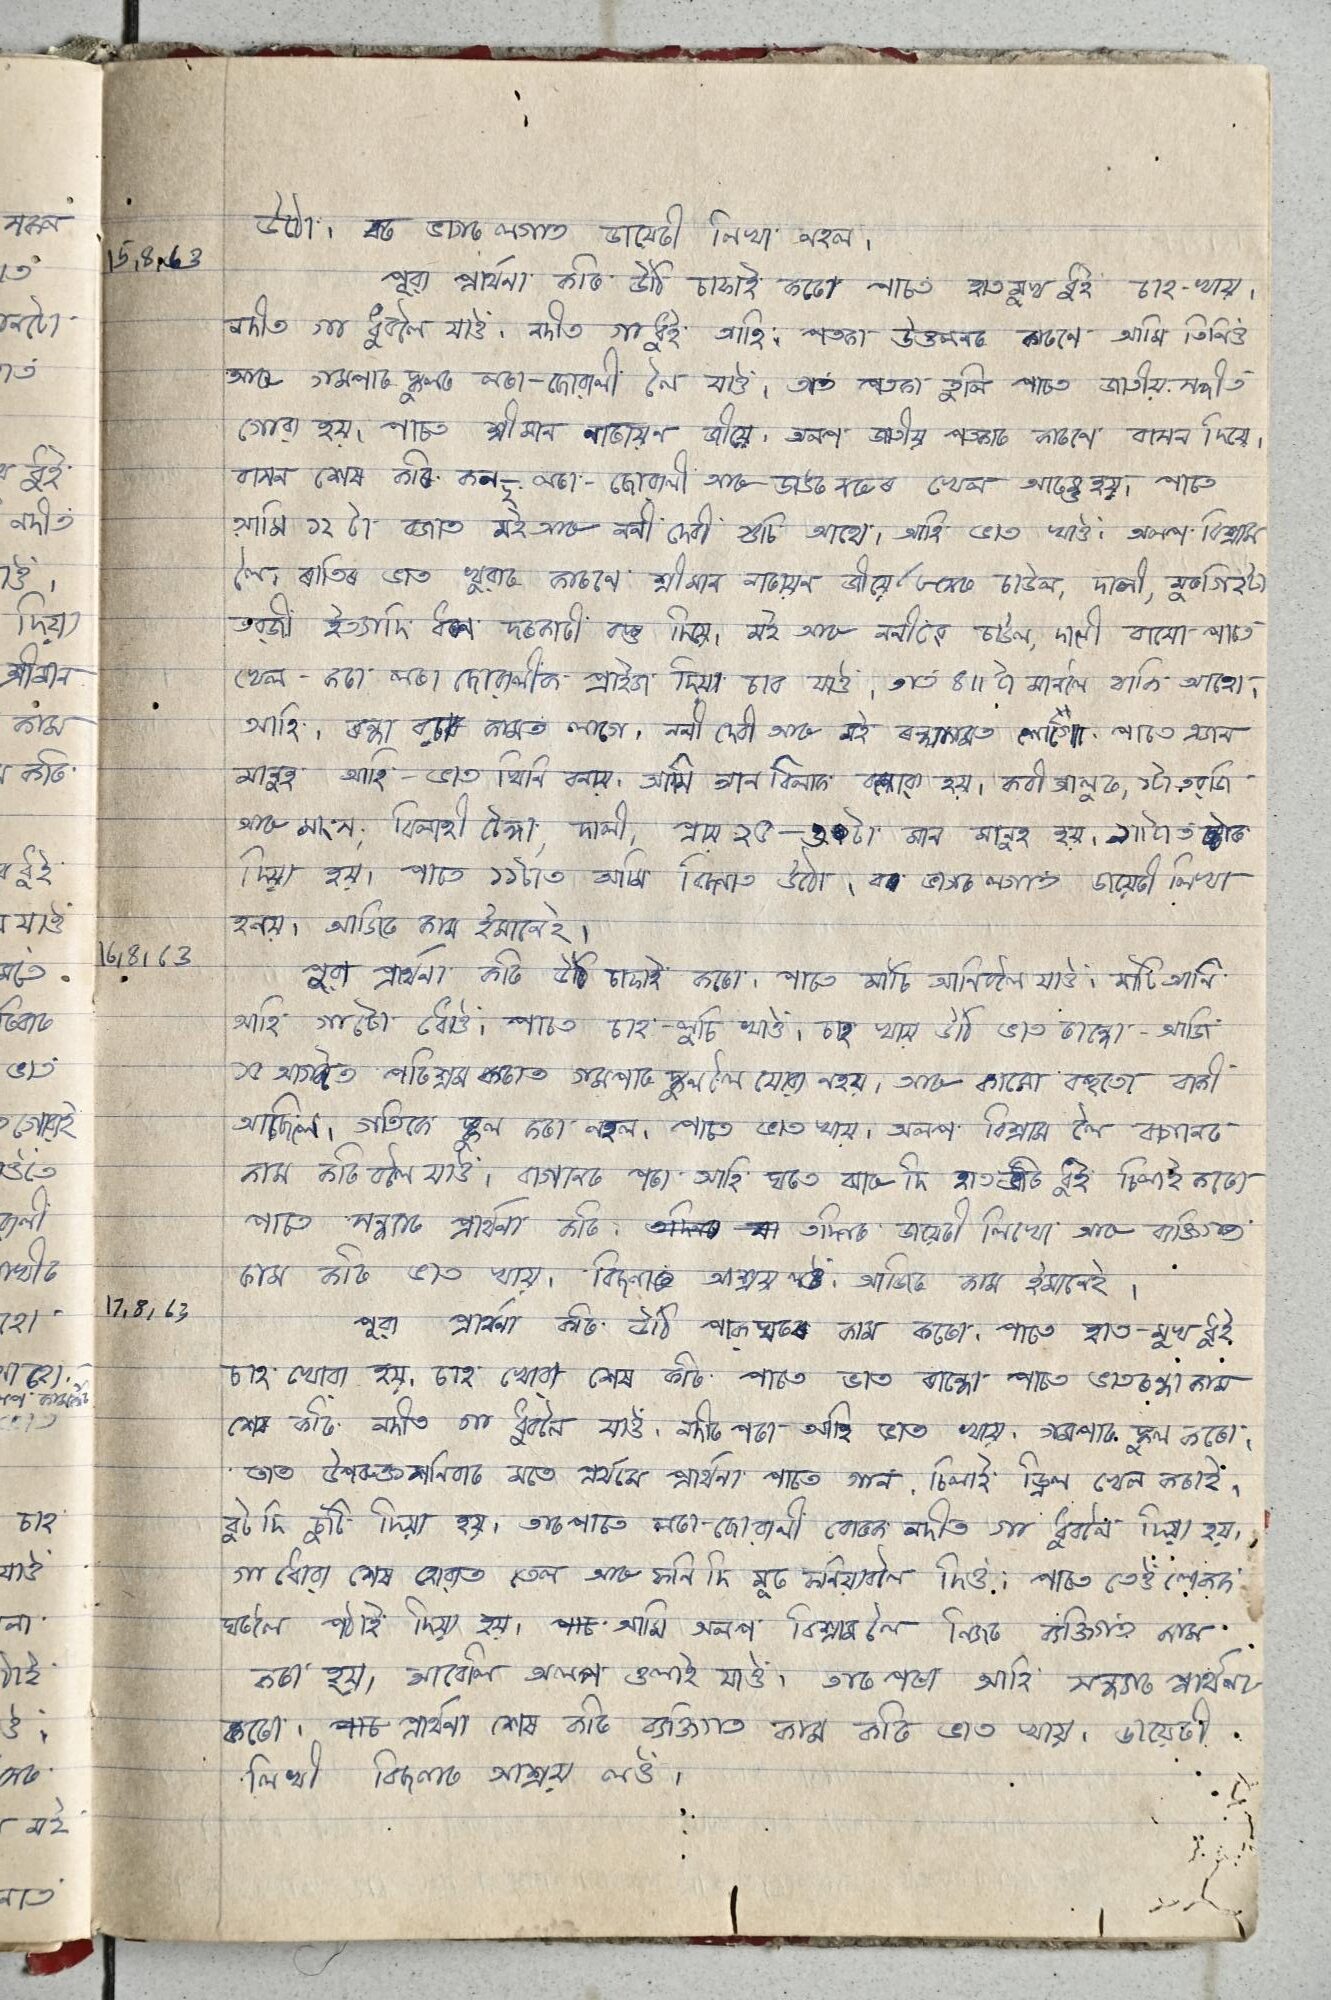 উঠো। বৰ ভাগৰ লগাত ডায়েৰী লিখা নহল।
15.8.63
পুৱা প্ৰাৰ্থনা কৰি উঠি চাফাই কৰো পাচত হাতমুখ ধুই চাহ-খায়।
নদীত গা ধুবলৈ যাওঁ। নদীত গা ধুই আহি। পতকা উত্তলনৰ কাৰণে আমি তিনিও
আৰু গমপাৰ স্কুলৰ লৰা-ছোৱালী লৈ যাওঁ। তাত পতকা তুলি পাচত জাতীয় সঙ্গীত
গোৱা হয়। পাচত শ্ৰীমান নাৰায়ন জীয়ে। অলপ জাতীয় পতকাৰ কাৰণে বাসন দিয়ে।
বাসন শেষ কৰি লৰা-ছোৱালী আৰু খেল আৰম্ভ হয়। পাচত
আমি ১২ টা বজাত মই আৰু ননী দেবী গুচি আহো। আহি ভাত খাওঁ। অলপ বিশ্ৰাম
লৈ। ৰাতিৰ ভাত খুৱাৰ কাৰণে শ্ৰীমান নাৰায়ন জীয়ে চাউল, দালী, মুৰগি ইটা
তৰ্জী ইত্যাদি ধৰনে দৰকাৰী বস্তু দিয়ে। মই আৰু ননীয়ে চাউল, দালী বাচো পাচত
খেল-কৰা লৰা ছোৱালীক প্ৰাইজ দিয়া চাব যাওঁ। তাত ৪॥ টা মানলৈ থাকি আহো।
আহি। ৰন্ধা বঢ়াৰ কামত লাগো। ননী দেবী আৰু মই পাচত গ্ৰাম
মানুহ আহি-ভাত খিনি বনায়। আমি আন বিলাক হয়। কবী আলুৰ, ১টা তৰ্জি
আৰু মাংস, বিলাহী টেঙ্গা, দালী, প্ৰায় ২৫-৩০টা মান মানুহ হয়। ৯॥টাত
দিয়া হয়। পাচত ১১টাত আমি বিছনাত উঠো। বৰ ভাগৰ লগাত ডায়েৰী লিখা
হনয়। আজিৰ কাম ইমানেই।
16.8.63
পুৱা প্ৰাৰ্থনা কৰি উঠি চাফাই কৰো। পাচত মাটি আনিবলৈ যাওঁ। মাটি আনি
আহি গাটো ধোওঁ। পাচত চাহ-লুচি খাওঁ। চাহ খায় উঠি ভাত ৰান্ধো-আজি
১৫ আগষ্টত পৰিশ্ৰম কৰাত গমপাৰ স্কুললৈ যোৱা নহয়। আৰু কামো বহুতো বাকী
আছিলে। গতিকে স্কুল কৰা নহল। পাচত ভাত খায়। অলপ বিশ্ৰাম লৈ বাগানৰ
কাম কৰিবলৈ যাওঁ। বাগানৰ পৰা আহি ঘৰত ঝাৰু দি হাত ভৰি ধুই চিলাই কৰো
পাচত সন্ধ্যাৰ প্ৰাৰ্থনা কৰি। তদিনৰ ডায়েৰী লিখো আৰু ব্যক্তিগত
কাম কৰি ভাত খায়। বিছনাত আশ্ৰয় লওঁ। আজিৰ কাম ইমানেই।
17.8.63
পুৱা প্ৰাৰ্থনা কৰি উঠি পাকঘৰৰ কাম কৰো। পাচত হাত-মুখ ধুই
চাহ খোৱা হয়। চাহ খোৱা শেষ কৰি পাচত ভাত ৰান্ধো পাচত ভাতৰন্ধা কাম
শেষ কৰি নদীত গা ধুবলৈ যাওঁ। নদীৰ পৰা আহি ভাত খায়। গমপাৰ স্কুল কৰো।
তাত শনিবাৰ মতে প্ৰথমে প্ৰাৰ্থনা পাচত গান, চিলাই ড্ৰিল খেল কৰাই।
বুট দি ছুটি দিয়া হয়। তাৰপাচত লৰা-ছোৱালী বোৰক নদীত গা ধুবলৈ দিয়া হয়।
গা ধোৱা শেষ হোৱাত তেল আৰু ফনি দি মূৰ ফনিয়াবলৈ দিওঁ। পাচত তেওঁলোকক
ঘৰলৈ পঠাই দিয়া হয়। আমি অলপ বিশ্ৰাম লৈ নিজৰ ব্যক্তিগত কাম
কৰা হয়। আবেলি অলপ ওলাই যাওঁ। তাৰ পৰা আহি সন্ধ্যাৰ প্ৰাৰ্থনা
কৰো। প্ৰাৰ্থনা শেষ কৰি ব্যক্তিগত কাম কৰি ভাত খায়। ডায়েৰী
লিখী বিছনাত আশ্ৰয় লওঁ।